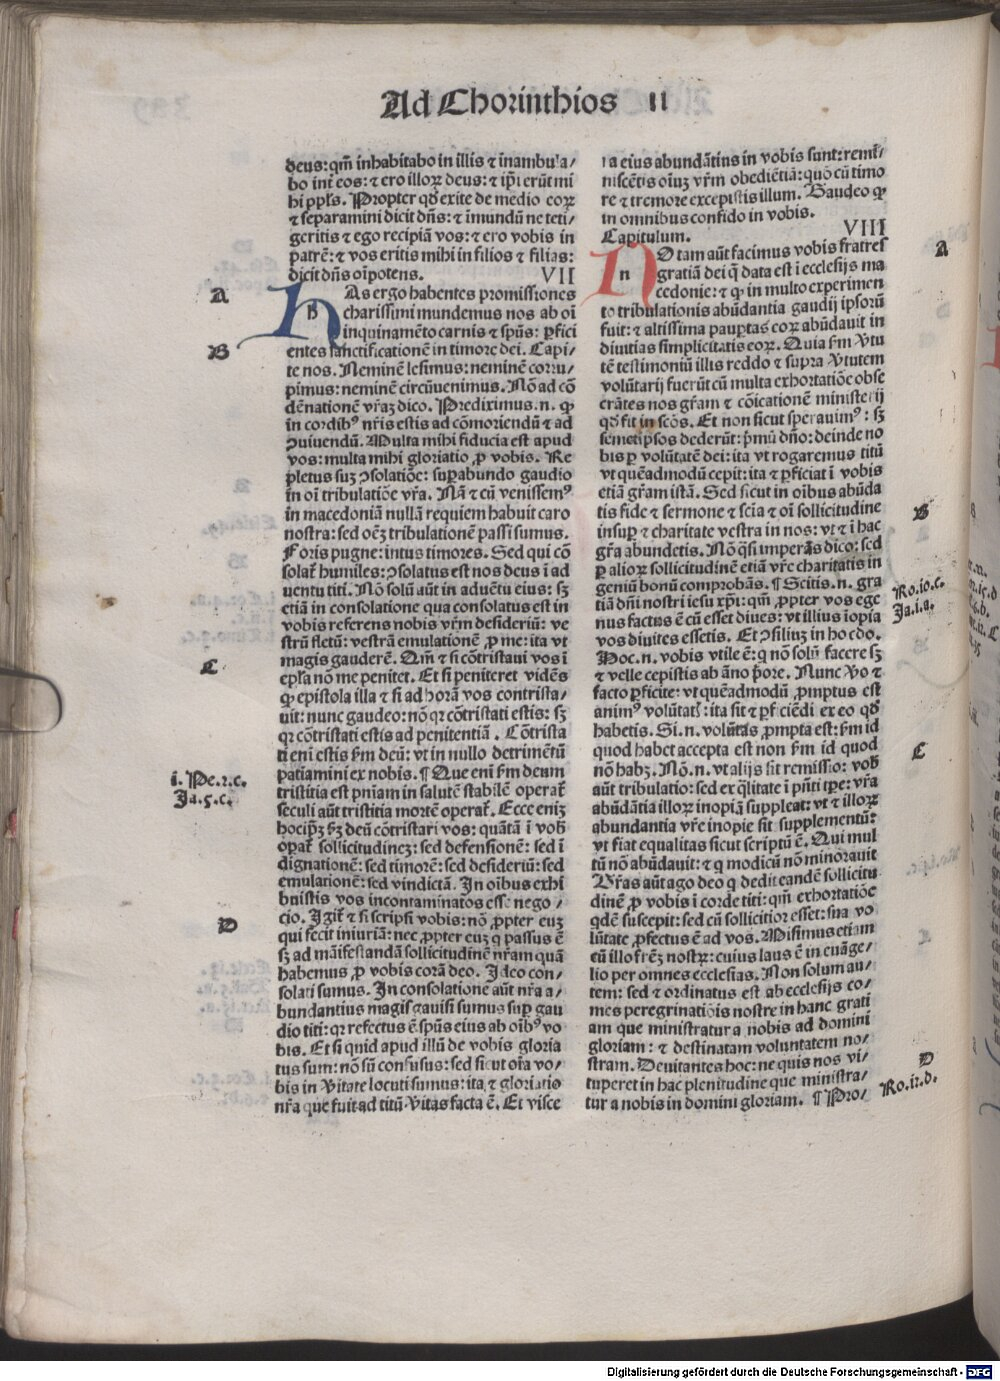 Ad Chorinthios II
deus:qm̄ inhabitabo in illis ⁊ inambula/
bo int̄ eos:⁊ ero illoꝝ deus:⁊ ip̄i erūt mi
hi ppl̄s. Propter qd̛ exite de medio eoꝝ
⁊ separamini dicit dn̄s:⁊ imundū ne teti/
geritis ⁊ ego recipiā vos:⁊ ero vobis in
patrē:⁊ vos eritis mihi in filios ⁊ filias:
dicit dn̄s oīpotens. VII
A
HAs ergo habentes promissiones
h charissimi mundemus nos ab oī
inquinamēto carnis ⁊ spūs: ꝑfici
B
entes sanctificationē in timore dei. Capi/
te nos. Neminē lesimus:neminē corru/
pimus:neminē circūuenimus. Nō ad cō
dēnationē vr̄aꝫ dico. Prediximus.n. ꝙ
in cordibꝰ nr̄is estis ad cōmoriendū ⁊ ad
ꝯuiuendū. Multa mihi fiducia est apud
vos:multa mihi gloriatio ꝓ vobis. Re
pletus suꝫ ꝯsolatiōe: suꝑabundo gaudio
in oī tribulatiōe vr̄a. Nā ⁊ cū venissemꝰ
in macedoniā nullā requiem habuit caro
nostra:sed oēꝫ tribulationē passi sumus.
Foris pugne:intus timores. Sed qui cō
solat̄ humiles:ꝯsolatus est nos deus ī ad
uentu titi. Nō solū aūt in aduētu eius: sꝫ
etiā in consolatione qua consolatus est in
vobis referens nobis vr̄m desideriū: ve
strū fletū: vestrā emulationē ꝓ me:ita vt
C
magis gauderē. Qm̄ ⁊ si cōtristaui vos ī
epl̄a nō me penitet. Et si peniteret vidēs
ꝙ epistola illa ⁊ si ad horā vos contrista/
uit: nunc gaudeo:nō qꝛ cōtristati estis: sꝫ
qꝛ cōtristati estis ad penitentiā. Cōtrista
ti eni estis s̄m deū: vt in nullo detrimētū
i. Pe.2.c.
patiamini ex nobis. ¶ Que eni s̄m deum
Ja.5.c.
tristitia est pn̄iam in salutē stabilē operat̄
seculi aūt tristitia mortē operat̄. Ecce eniꝫ
hocip̄ꝫ s̄ꝫ deū cōtristari vos: quātā ī vob̄
oꝑat̄ sollicitudineꝫ: sed defensionē: sed ī
dignationē: sed timorē: sed desideriū: sed
emulationē: sed vindictā. In oībus exhi
buistis vos incontaminatos esse nego/
D
cio. Igit̄ ⁊ si scripsi vobis: nō ꝓpter euꝫ
qui fecit iniuriā: nec ꝓpter euꝫ q passus ē
sꝫ ad māifestandā sollicitudinē nr̄am quā
habemus ꝓ vobis corā deo. Ideo con/
solati sumus. In consolatione aūt nr̄a a/
bundantius magis gauisi sumus suꝑ gau
dio titi: qꝛ refectus ē spūs eius ab oībꝰ vo
bis. Et si quid apud illū de vobis gloria
tus sum: nō sū confusus: sed sicut oīa vo/
bis in v̄itate locuti sumus: ita ⁊ gloriatio
nr̄a que fuit ad titū v̄itas facta ē. Et visce
ra eius abundātius in vobis sunt: remī/
niscētis oīuꝫ vr̄m obediētiā: quō cū timo
re ⁊ tremore excepistis illum. Gaudeo ꝙ
in omnibus confido in vobis.
Capitulum. VIII
A
NOtam aūt facimus vobis fratres
n gratiā dei q̄ data est ī ecclesijs ma
cedonie: ⁊ ꝙ in multo experimen
to tribulationis abūdantia gaudij ipsorū
fuit: ⁊ altissima pauꝑtas eoꝝ abūdauit in
diuitias simplicitatis eoꝝ. Quia s̄m v̄tu
tē testimoniū illis reddo ⁊ supra v̄tutem
volūtarij fuerūt cū multa exhortatiōe obse
crātes nos gr̄am ⁊ cōicationē ministerij
qd̛ fit in scōs. Et non sicut sperauimꝰ: sꝫ
semetipsos dederūt: p̄mū dn̄o: deinde no
bis ꝑ volūtatē dei: ita vt rogaremus titū
vt quēadmodū cepit: ita ⁊ ꝑficiat ī vobis
etiā gr̄am istā. Sed sicut in oībus abūda
B
tis fide ⁊ sermone ⁊ scīa ⁊ oī sollicitudine
insuꝑ ⁊ charitate vestra in nos: vt ⁊ ī hac
gr̄a abundetis. Nō q̄si imperās dico: sed
ꝑ alioꝝ sollicitudinē etiā vr̄e charitatis in
Ro.10.c.
geniū bonū comprobās. ¶ Scitis.n. gra
Ja.1.a.
tiā dn̄i nostri iesu xp̄i: qm̄ ꝓpter vos ege
nus factus ē cū esset diues: vt illius īopia
vos diuites essetis. Et ꝯsiliuꝫ in hoc do.
Hoc.n. vobis vtile ē: q nō solū facere sꝫ
⁊ velle cepistis ab āno p̄ore. Nunc v̄o ⁊
facto ꝑficite: vt quēadmodū ꝓmptus est
animꝰ volūtat̄: ita sit ⁊ ꝑficiēdi ex eo qd̛
habetis. Si.n. volūtas ꝓmpta est: s̄m id
C
quod habet accepta est non s̄m id quod
nō habꝫ. Nō.n. vt alijs sit remissio: vob̄
aūt tribulatio: sed ex q̄litate ī pn̄ti tꝑe: vr̄a
abūdātia illoꝝ inopiā suppleat: vt ⁊ illoꝝ
abundantia vr̄e inopie sit supplementū:
vt fiat equalitas sicut scriptū ē. Qui mul
tū nō abūdauit: ⁊ q modicū nō minorauit
Gr̄as aūt ago deo q dedit eandē sollicitu
dinē ꝓ vobis ī corde titi: qm̄ exhortatiōe
qdē suscepit: sed cū sollicitior esset: sua vo
lūtate ꝓfectus ē ad vos. Misimus etiam
cū illo fr̄eꝫ nostꝝ: cuius laus ē in euāge/
lio per omnes ecclesias. Non solum au/
tem: sed ⁊ ordinatus est ab ecclesijs co/
mes peregrinatiōis nostre in hanc grati
am que ministratur a nobis ad domini
gloriam: ⁊ destinatam voluntatem no/
D
stram. Deuitantes hoc: ne quis nos vi/
Ro.12.d.
tuperet in hac plenitudine que ministra/
tur a nobis in domini gloriam. ¶ Pro/
Digitalisierung gefördert durch die Deutsche Forschungsgemeinschaft - DFG